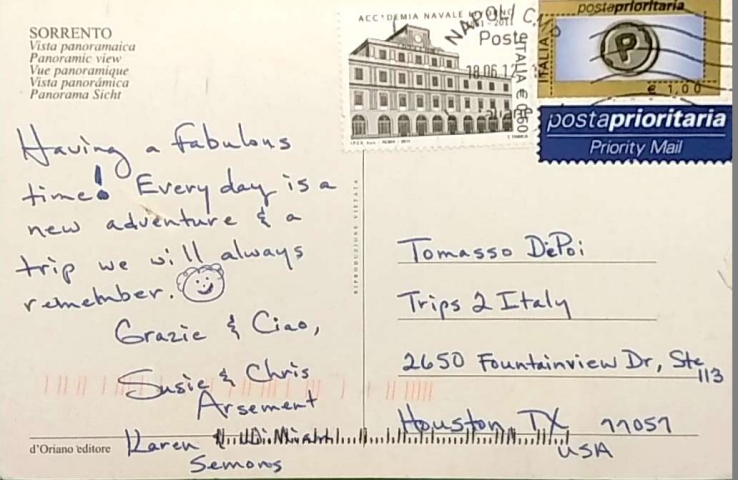 SORRENTO
Vista panoramaica
Panoramic view
Vue panoramique
Vista panorámica
Panorama Sicht
Having a fabulous
time! Every day is a
new adventure & a
trip we will always
remember.
Grazie & Ciao,
Susie & Chris
Arsement
Karen &
Semons
d'Oriano editore
RIPRODUZIONE VIETATA
ACCADEMIA NAVALE
2011
ITALIA € 0,60
NAPOLI CMP
Poste
18.06.12
postaprioritaria
ITALIA
P
€ 1,00
postaprioritaria
Priority Mail
Tomasso DePoi
Trips 2 Italy
2650 Fountainview Dr, Ste
113
Houston TX 77057
USA